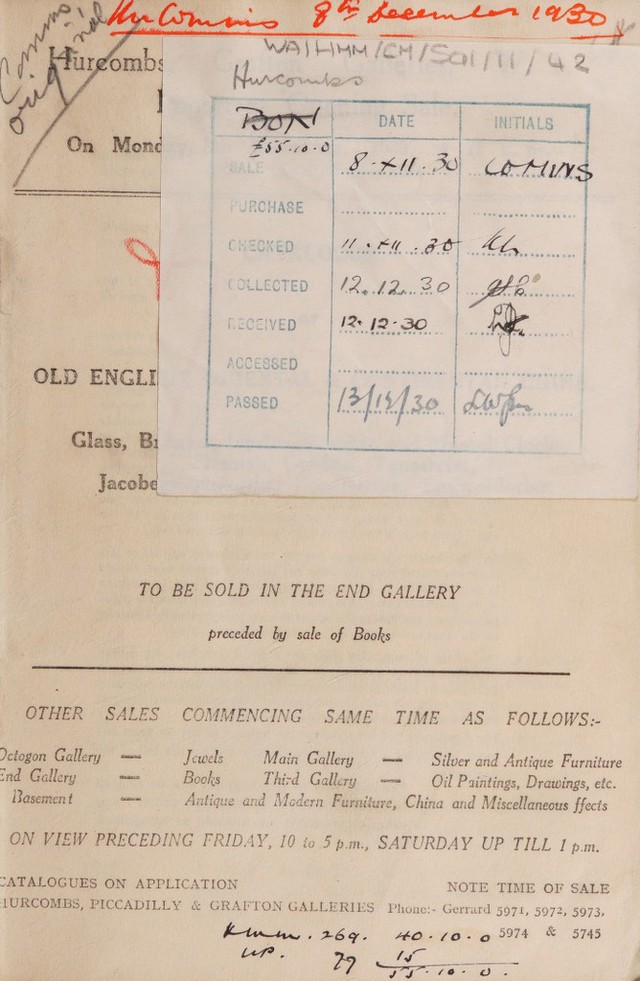 Mr Comins 8th December 1930
Comins
original
Hurcombs
On Mond
WA/HMM/CM/Sal/11/42
Hurcombs
BON DATE INITIALS
£55.10.0
SALE 8.X11.30 COMINS
PURCHASE
CHECKED 11.X11.30
COLLECTED 12.12.30
RECEIVED 12.12.30
ACCESSED
PASSED 13/12/30
OLD ENGLI
Glass, Br
Jacobe
TO BE SOLD IN THE END GALLERY
preceded by sale of Books
OTHER SALES COMMENCING SAME TIME AS FOLLOWS:-
Octogon Gallery — Jewels Main Gallery — Silver and Antique Furniture
End Gallery — Books Third Gallery — Oil Paintings, Drawings, etc.
Basement — Antique and Modern Furniture, China and Miscellaneous ffects
ON VIEW PRECEDING FRIDAY, 10 to 5 p.m., SATURDAY UP TILL 1 p.m.
CATALOGUES ON APPLICATION NOTE TIME OF SALE
HURCOMBS, PICCADILLY & GRAFTON GALLERIES Phone:- Gerrard 5971, 5972, 5973,
5974 & 5745
269. 40.10.0
UP. 79 15
55.10.0.